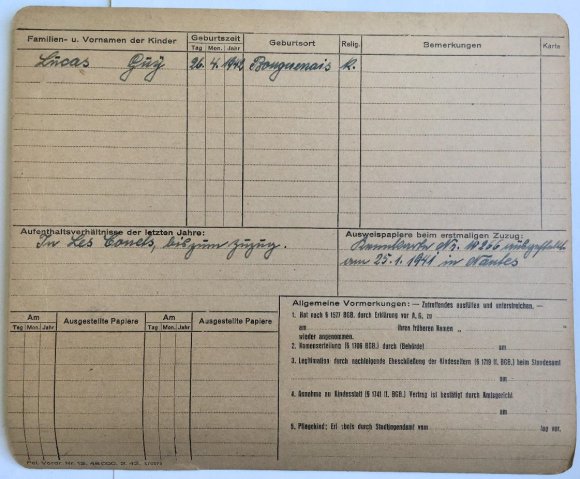 Familien- u. Vornamen der Kinder Geburtszeit Geburtsort Relig. Bemerkungen Karte
Tag Mon. Jahr
Lucas Guy 26. 4. 1942 Bouguenais k.
Aufenthaltsverhältnisse der letzten Jahre:
In Les Couets, bis zum Zuzug.
Ausweispapiere beim erstmaligen Zuzug:
Kennkarte Nr. 18266 ausgestellt
am 25.1.1941 in Nantes
Am Ausgestellte Papiere Am Ausgestellte Papiere
Tag Mon. Jahr Tag Mon. Jahr
Allgemeine Vormerkungen: — Zutreffendes ausfüllen und unterstreichen. —
1. Hat nach § 1577 BGB. durch Erklärung vor A. G. zu
am ihren früheren Namen „ “
wieder angenommen.
2. Namenserteilung (§ 1706 BGB.) durch (Behörde) am
3. Legitimation durch nachfolgende Eheschließung der Kindeseltern (§ 1719 ff. BGB.) beim Standesamt
am
4. Annahme an Kindesstatt (§ 1741 ff. BGB.) Vertrag ist bestätigt durch Amtsgericht
am
5. Pflegekind: Erlaubnis durch Stadtjugendamt vom lag vor.
Pol. Vordr. Nr. 13. 48000. 2. 42.